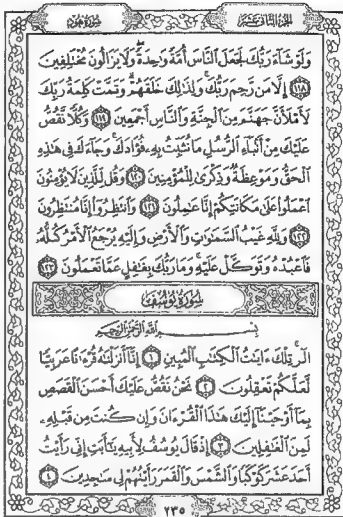 الجزء الثاني عشر سورة هود
وَلَوْ شَآءَ رَبُّكَ لَجَعَلَ ٱلنَّاسَ أُمَّةً وَٰحِدَةً وَلَا يَزَالُونَ مُخْتَلِفِينَ
١١٨ إِلَّا مَن رَّحِمَ رَبُّكَ وَلِذَٰلِكَ خَلَقَهُمْ وَتَمَّتْ كَلِمَةُ رَبِّكَ
لَأَمْلَأَنَّ جَهَنَّمَ مِنَ ٱلْجِنَّةِ وَٱلنَّاسِ أَجْمَعِينَ ١١٩ وَكُلًّا نَّقُصُّ
عَلَيْكَ مِنْ أَنۢبَآءِ ٱلرُّسُلِ مَا نُثَبِّتُ بِهِۦ فُؤَادَكَ وَجَآءَكَ فِى هَٰذِهِ
ٱلْحَقُّ وَمَوْعِظَةٌ وَذِكْرَىٰ لِلْمُؤْمِنِينَ ١٢٠ وَقُل لِّلَّذِينَ لَا يُؤْمِنُونَ
ٱعْمَلُوا۟ عَلَىٰ مَكَانَتِكُمْ إِنَّا عَٰمِلُونَ ١٢١ وَٱنتَظِرُوٓا۟ إِنَّا مُنتَظِرُونَ
١٢٢ وَلِلَّهِ غَيْبُ ٱلسَّمَٰوَٰتِ وَٱلْأَرْضِ وَإِلَيْهِ يُرْجَعُ ٱلْأَمْرُ كُلُّهُۥ
فَٱعْبُدْهُ وَتَوَكَّلْ عَلَيْهِ وَمَا رَبُّكَ بِغَٰفِلٍ عَمَّا تَعْمَلُونَ ١٢٣
سورة يوسف
بِسْمِ ٱللَّهِ ٱلرَّحْمَٰنِ ٱلرَّحِيمِ
الٓر تِلْكَ ءَايَٰتُ ٱلْكِتَٰبِ ٱلْمُبِينِ ١ إِنَّآ أَنزَلْنَٰهُ قُرْءَٰنًا عَرَبِيًّا
لَّعَلَّكُمْ تَعْقِلُونَ ٢ نَحْنُ نَقُصُّ عَلَيْكَ أَحْسَنَ ٱلْقَصَصِ
بِمَآ أَوْحَيْنَآ إِلَيْكَ هَٰذَا ٱلْقُرْءَانَ وَإِن كُنتَ مِن قَبْلِهِۦ
لَمِنَ ٱلْغَٰفِلِينَ ٣ إِذْ قَالَ يُوسُفُ لِأَبِيهِ يَٰٓأَبَتِ إِنِّى رَأَيْتُ
أَحَدَ عَشَرَ كَوْكَبًا وَٱلشَّمْسَ وَٱلْقَمَرَ رَأَيْتُهُمْ لِى سَٰجِدِينَ ٤
٢٣٥